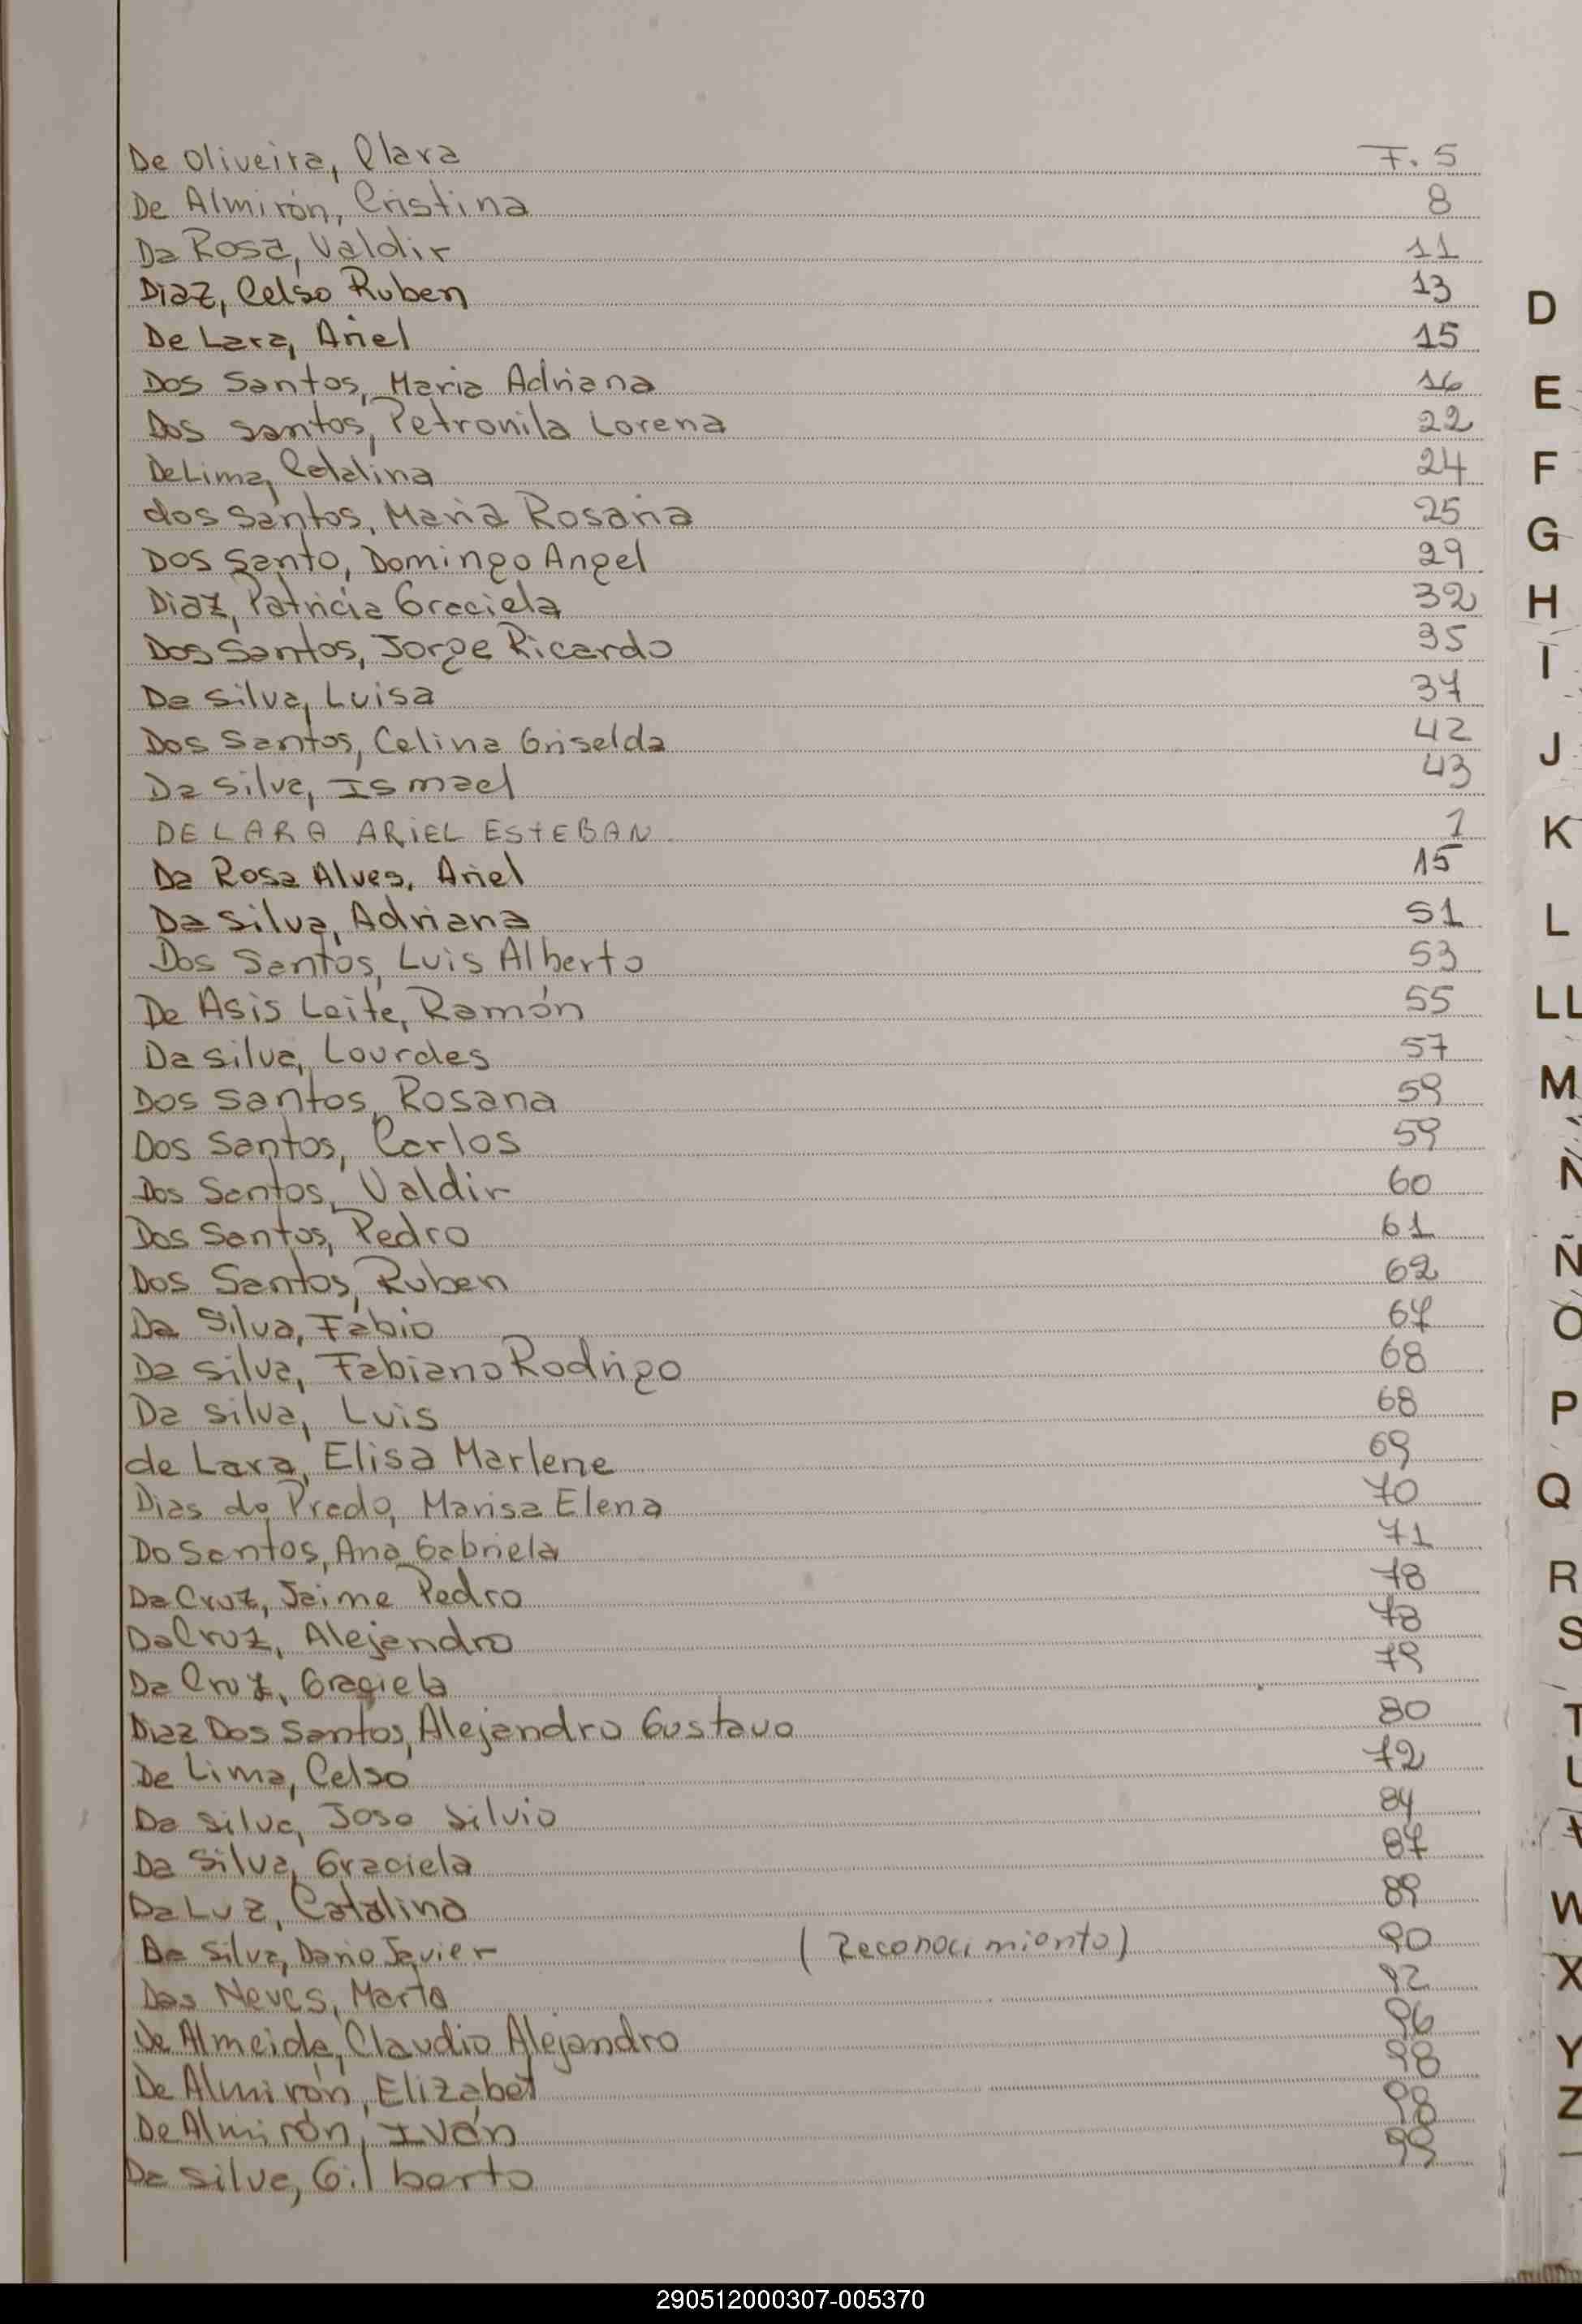 De Oliveira, Clara F. 5
De Almirón, Cristina 8
Da Rosa, Valdir 11
Diaz, Celso Ruben 13
De Lara, Ariel 15
Dos Santos, Maria Adriana 16
Dos santos, Petronila Lorena 22
De Lima, Catalina 24
dos Santos, Maria Rosana 25
Dos Santo, Domingo Angel 29
Diaz, Patricia Graciela 32
Dos Santos, Jorge Ricardo 35
Da Silva, Luisa 37
Dos Santos, Celina Griselda 42
Da Silva, Ismael 43
DE LARA ARIEL ESTEBAN 1
Da Rosa Alves, Ariel 15
Da Silva, Adriana 51
Dos Santos, Luis Alberto 53
De Asis Leite, Ramón 55
Da silva, Lourdes 57
Dos Santos, Rosana 59
Dos Santos, Carlos 59
Dos Santos, Valdir 60
Dos Santos, Pedro 61
Dos Santos, Ruben 62
Da Silva, Fabio 67
Da silva, Fabiano Rodrigo 68
Da silva, Luis 68
de Lara, Elisa Marlene 69
Dias do Prado, Marisa Elena 70
Do Santos, Ana Gabriela 71
Da Cruz, Jaime Pedro 78
Da Cruz, Alejandro 78
Da Cruz, Graciela 79
Diaz Dos Santos, Alejandro Gustavo 80
De Lima, Celso 72
Da silva, Jose Silvio 84
Da Silva, Graciela 87
Da Luz, Catalina 89
Da Silva, Dario Javier (Reconocimiento) 90
Das Neves, Marta 92
De Almeida, Claudio Alejandro 96
De Almirón, Elizabet 98
De Almirón, Iván 98
Da silva, Gilberto 99
D
E
F
G
H
I
J
K
L
LL
M
N
Ñ
O
P
Q
R
S
T
U
V
W
X
Y
Z
290512000307-005370